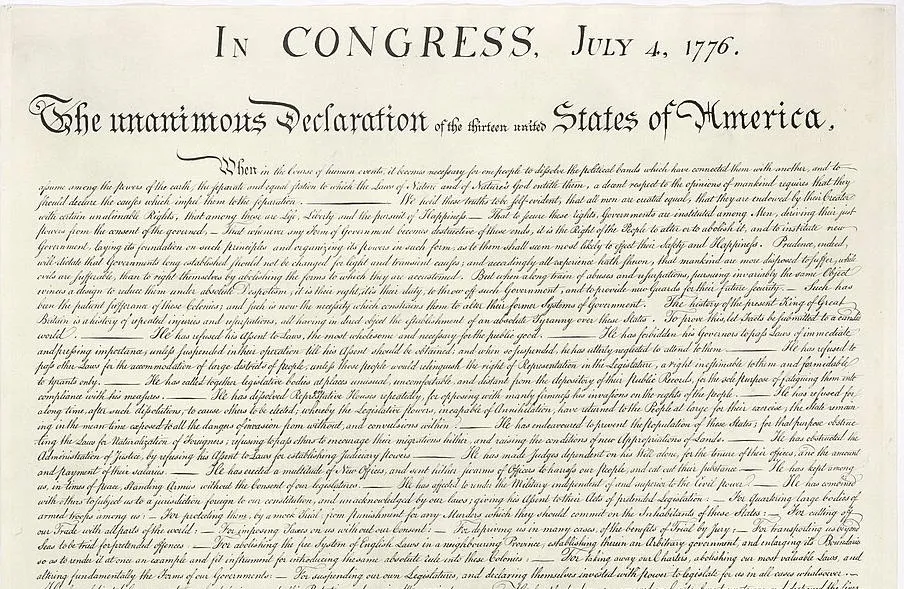 In CONGRESS, July 4, 1776.
The unanimous Declaration of the thirteen united States of America,
When in the Course of human events, it becomes necessary for one people to dissolve the political bands which have connected them with another, and to
assume among the powers of the earth, the separate and equal station to which the Laws of Nature and of Nature's God entitle them, a decent respect to the opinions of mankind requires that they
should declare the causes which impel them to the separation. — We hold these truths to be self-evident, that all men are created equal, that they are endowed by their Creator
with certain unalienable Rights, that among these are Life, Liberty and the pursuit of Happiness. — That to secure these rights, Governments are instituted among Men, deriving their just
powers from the consent of the governed, — That whenever any Form of Government becomes destructive of these ends, it is the Right of the People to alter or to abolish it, and to institute new
Government, laying its foundation on such principles and organizing its powers in such form, as to them shall seem most likely to effect their Safety and Happiness. Prudence, indeed,
will dictate that Governments long established should not be changed for light and transient causes; and accordingly all experience hath shewn, that mankind are more disposed to suffer, while
evils are sufferable, than to right themselves by abolishing the forms to which they are accustomed. But when a long train of abuses and usurpations, pursuing invariably the same Object
evinces a design to reduce them under absolute Despotism, it is their right, it is their duty, to throw off such Government, and to provide new Guards for their future security. — Such has
been the patient sufferance of these Colonies; and such is now the necessity which constrains them to alter their former Systems of Government. The history of the present King of Great
Britain is a history of repeated injuries and usurpations, all having in direct object the establishment of an absolute Tyranny over these States. To prove this, let Facts be submitted to a candid
world. — He has refused his Assent to Laws, the most wholesome and necessary for the public good. — He has forbidden his Governors to pass Laws of immediate
and pressing importance, unless suspended in their operation till his Assent should be obtained; and when so suspended, he has utterly neglected to attend to them. — He has refused to
pass other Laws for the accommodation of large districts of people, unless those people would relinquish the right of Representation in the Legislature, a right inestimable to them and formidable
to tyrants only. — He has called together legislative bodies at places unusual, uncomfortable, and distant from the depository of their public Records, for the sole purpose of fatiguing them into
compliance with his measures. — He has dissolved Representative Houses repeatedly, for opposing with manly firmness his invasions on the rights of the people. — He has refused for
a long time, after such dissolutions, to cause others to be elected; whereby the Legislative powers, incapable of Annihilation, have returned to the People at large for their exercise; the State remain-
ing in the mean time exposed to all the dangers of invasion from without, and convulsions within. — He has endeavoured to prevent the population of these States; for that purpose obstruc-
ting the Laws for Naturalization of Foreigners; refusing to pass others to encourage their migrations hither, and raising the conditions of new Appropriations of Lands. — He has obstructed the
Administration of Justice, by refusing his Assent to Laws for establishing Judiciary powers. — He has made Judges dependent on his Will alone, for the tenure of their offices, and the amount
and payment of their salaries. — He has erected a multitude of New Offices, and sent hither swarms of Officers to harrass our people, and eat out their substance. — He has kept among
us, in times of peace, Standing Armies without the Consent of our legislatures. — He has affected to render the Military independent of and superior to the Civil power. — He has combined
with others to subject us to a jurisdiction foreign to our constitution, and unacknowledged by our laws; giving his Assent to their Acts of pretended Legislation: — For Quartering large bodies of
armed troops among us: — For protecting them, by a mock Trial, from punishment for any Murders which they should commit on the Inhabitants of these States: — For cutting off
our Trade with all parts of the world: — For imposing Taxes on us without our Consent: — For depriving us in many cases, of the benefits of Trial by jury: — For transporting us beyond
Seas to be tried for pretended offences — For abolishing the free System of English Laws in a neighbouring Province, establishing therein an Arbitrary government, and enlarging its Boundaries
so as to render it at once an example and fit instrument for introducing the same absolute rule into these Colonies: — For taking away our Charters, abolishing our most valuable Laws, and
altering fundamentally the Forms of our Governments: — For suspending our own Legislatures, and declaring themselves invested with power to legislate for us in all cases whatsoever. —